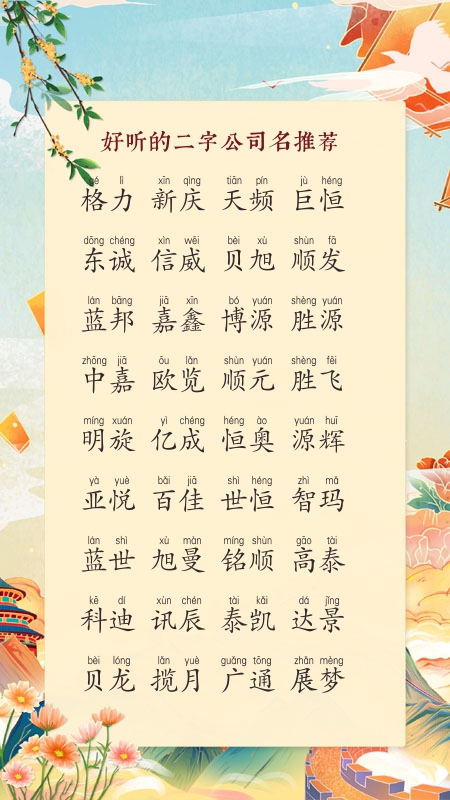 好听的二字公司名推荐
gé lì xīn qìng tiān pín jù héng
格力 新庆 天频 巨恒
dōng chéng xìn wēi bèi xù shùn fā
东诚 信威 贝旭 顺发
lán bāng jiā xīn bó yuán shèng yuán
蓝邦 嘉鑫 博源 胜源
zhōng jiā ōu lǎn shùn yuán shèng fēi
中嘉 欧览 顺元 胜飞
míng xuán yì chéng héng ào yuán huī
明旋 亿成 恒奥 源辉
yà yuè bǎi jiā shì héng zhì mǎ
亚悦 百佳 世恒 智玛
lán shì xù màn míng shùn gāo tài
蓝世 旭曼 铭顺 高泰
kē dí xùn chén tài kǎi dá jǐng
科迪 讯辰 泰凯 达景
bèi lóng lǎn yuè guǎng tōng zhǎn mèng
贝龙 揽月 广通 展梦